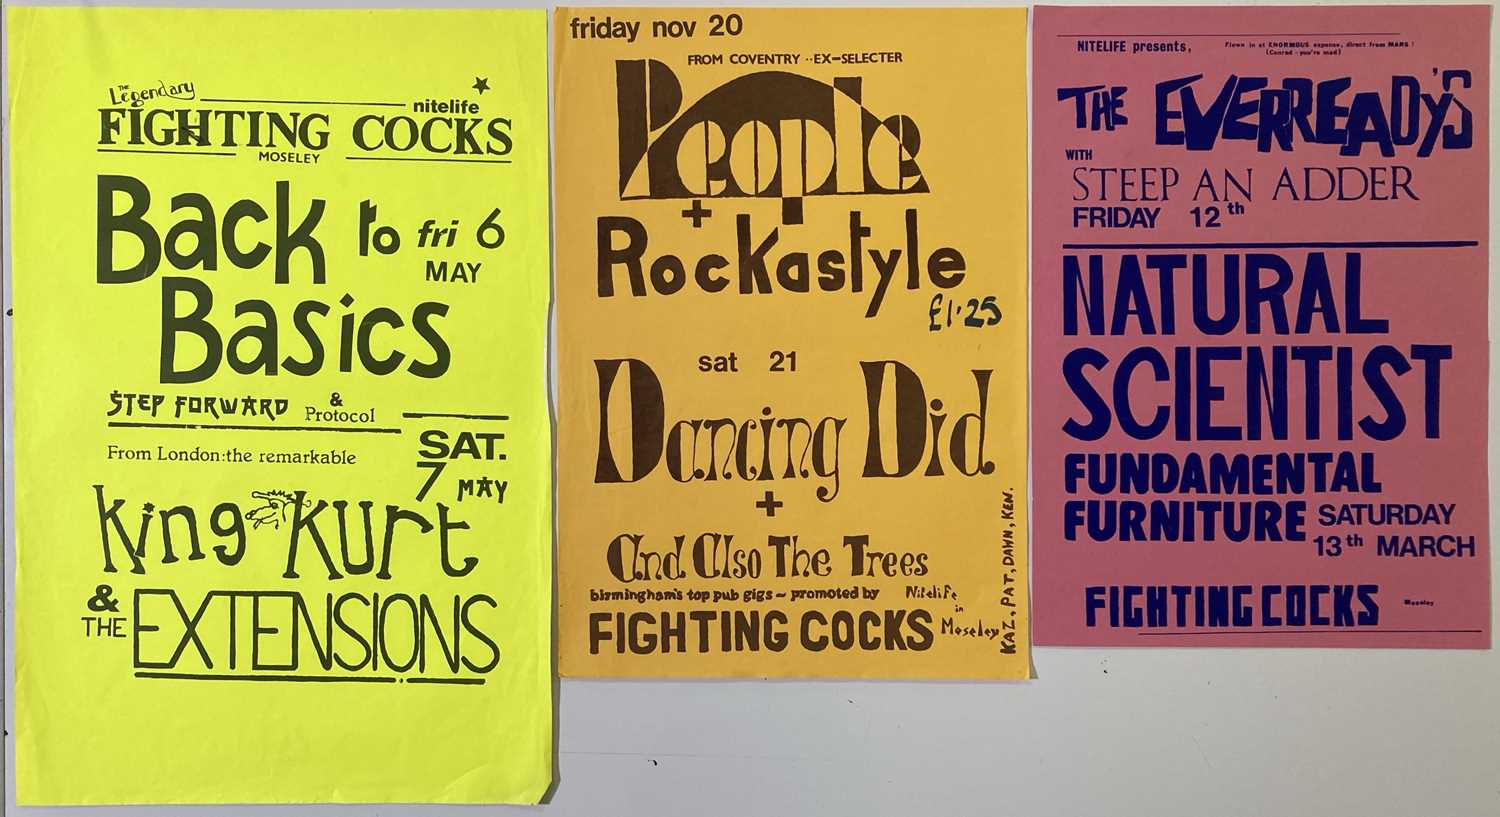 The Legendary
nitelife
FIGHTING COCKS
MOSELEY
Back to fri 6
MAY
Basics
STEP FORWARD & Protocol
From London:the remarkable
SAT.
7 MAY
King Kurt
& THE EXTENSIONS
friday nov 20
FROM COVENTRY ··EX-SELECTER
People
+
Rockastyle
£1·25
sat 21
Dancing Did
+
And Also The Trees
birmingham's top pub gigs ~ promoted by Nitelife
in
FIGHTING COCKS Moseley
KAZ, PAT, DAWN, KEN.
NITELIFE presents,
Flown in at ENORMOUS expense, direct from MARS !
(Conrad - you're mad)
THE EVERREADY'S
WITH
STEEP AN ADDER
FRIDAY 12th
NATURAL
SCIENTIST
FUNDAMENTAL
FURNITURE SATURDAY
13th MARCH
FIGHTING COCKS Moseley